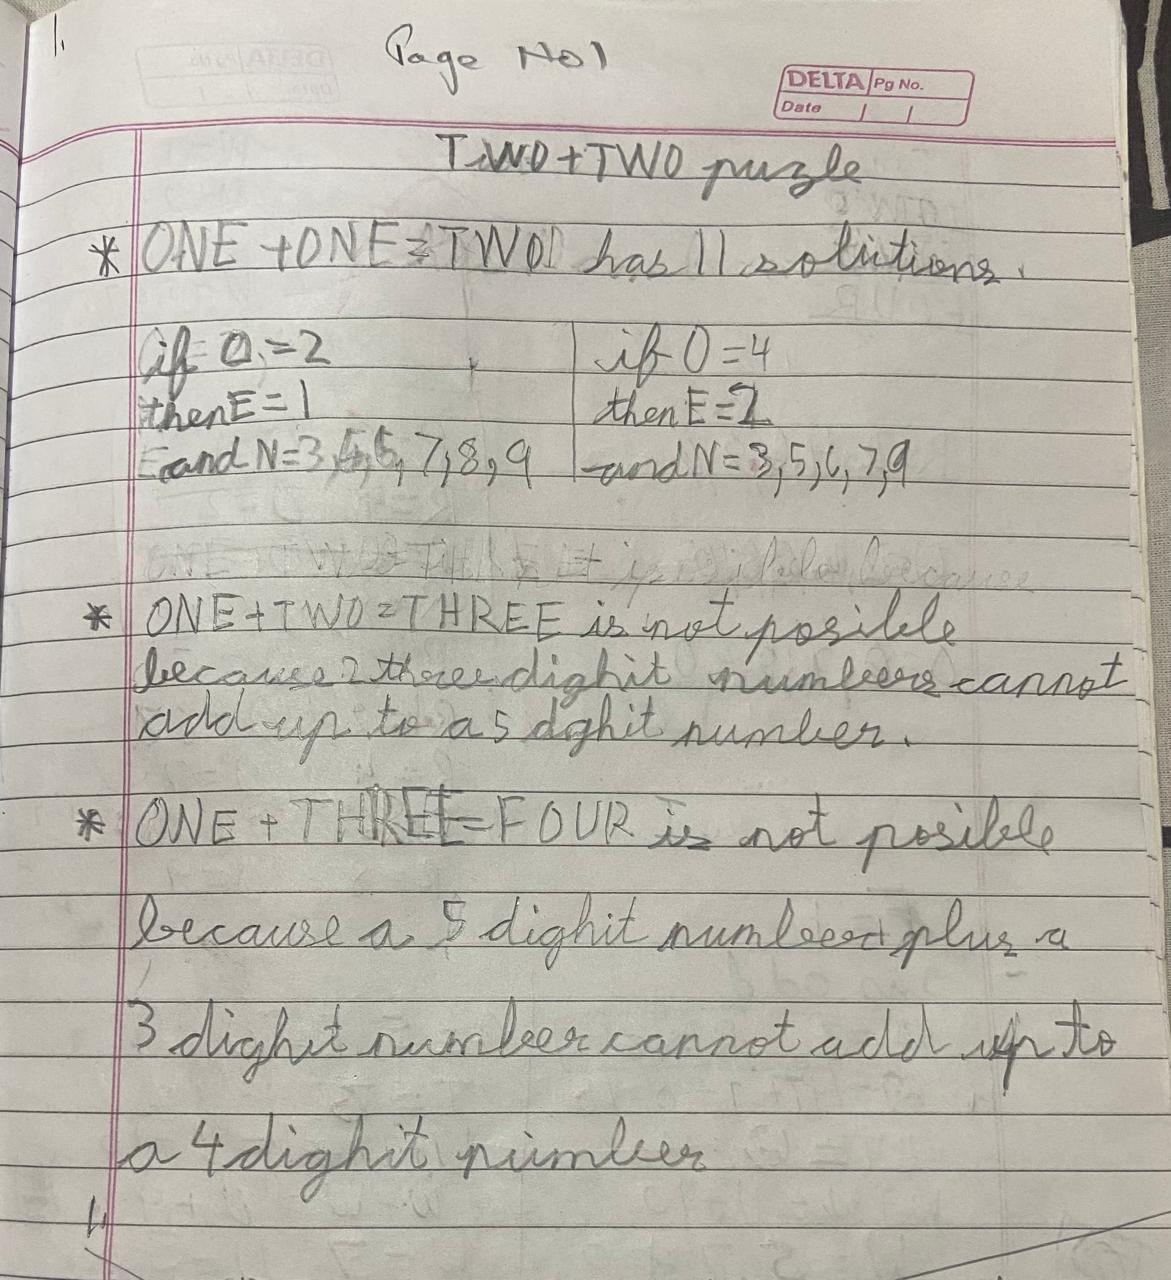 1.
Page No 1
DELTA Pg No.
Date / /
TWO+TWO puzzle
* ONE +ONE=TWO has 11 solutions.
if O=2
then E=1
and N=3,5,6,7,8,9
if O=4
then E=2
and N=3,5,6,7,9
* ONE+TWO=THREE is not posible
because 2 three dighit numbers cannot
add up to a 5 dghit number.
* ONE + THREE=FOUR is not posible
because a 5 dighit number plus a
3 dighit number cannot add up to
a 4 dighit number